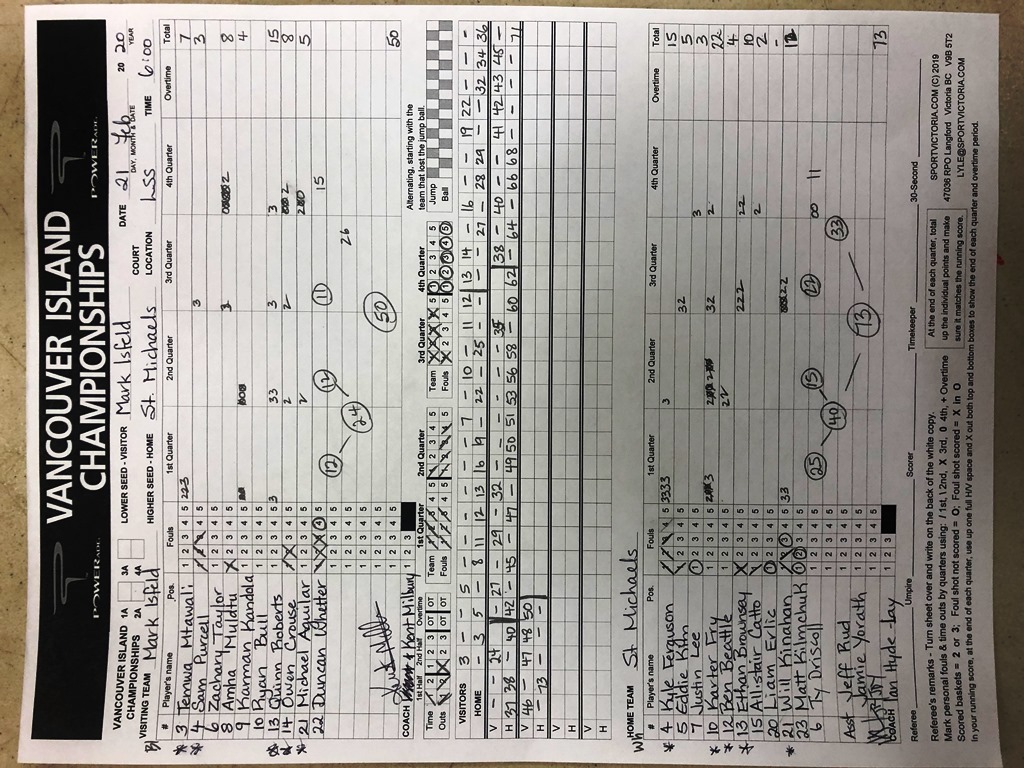 VANCOUVER ISLAND
CHAMPIONSHIPS
POWERADE
POWERADE
VANCOUVER ISLAND 1A 3A
CHAMPIONSHIPS 2A 4A
LOWER SEED - VISITOR Mark Isfeld
HIGHER SEED - HOME St. Michaels
DATE 21 Feb 20 20
DAY, MONTH & DATE YEAR
COURT LOCATION LSS TIME 6:00
VISITING TEAM Mark Isfeld
# Player's name Pos. Fouls 1st Quarter 2nd Quarter 3rd Quarter 4th Quarter Overtime Total
3 Temwa Mtawali 1 2 3 4 5 223 7
4 Sam Purcell 1 2 3 4 5 3 3
6 Zachary Taylor 1 2 3 4 5
8 Amha 1 2 3 4 5 3 2 8
9 Karman Kandola 1 2 3 4 5 4
10 Ryan Bull 1 2 3 4 5
13 Quinn Roberts 1 2 3 4 5 3 33 3 3 15
14 Owen Crouse 1 2 3 4 5 2 2 2 8
21 Michael Aguilar 1 2 3 4 5 2 5
22 Duncan Whetter 1 2 3 4 5
12 12 11 15
24 26
50
COACH Kent Milbury 1 2 3 50
Time Outs 1st Half 2nd Half Overtime
1 2 2 3 OT OT
Team Fouls 1st Quarter 2nd Quarter 3rd Quarter 4th Quarter
1 2 3 4 5
Jump Ball
Alternating, starting with the
team that lost the jump ball.
VISITORS 3 - - 5 - - - - - 7 - 10 - 11 - 12 13 14 - 16 - - 19 22 - - -
HOME - - 3 5 - 8 11 12 13 16 19 - 22 - 25 - - - - 27 - 28 29 - - 32 34 36
V - 24 - - 27 - 29 - 32 - - - - - 35 - - 38 - 40 - - 41 42 43 45 -
H 37 38 - 40 42 - 45 - 47 - 49 50 51 53 56 58 - 60 62 - 64 - 66 68 - - - - 71
V 46 - 47 48 50
H - 73 - - -
HOME TEAM St Michaels
# Player's name Pos. Fouls 1st Quarter 2nd Quarter 3rd Quarter 4th Quarter Overtime Total
4 Kyle Ferguson 1 2 3 4 5 3333 3 15
5 Eddie Kihn 1 2 3 4 5 32 5
7 Justin Lee 1 2 3 4 5 3 3
10 Kaxter Fry 1 2 3 4 5 32 2 22
12 Ben Beattle 1 2 3 4 5 22 4
13 Ethan Brownsey 1 2 3 4 5 222 22 10
15 Allistair Catto 1 2 3 4 5 2 2
20 Liam Erlic 1 2 3 4 5 -
21 Will Kinnahan 1 2 3 4 5 33 22 12
23 Matt Klimchuk 1 2 3 4 5
6 Ty Driscoll 1 2 3 4 5
25 15 22 11
40 33
73
Asst Jeff Ruid
Jamie Yorath
COACH Ian Hyde-Lay 1 2 3 73
Referee Umpire Scorer Timekeeper 30-Second
Referee's remarks - Turn sheet over and write on the back of the white copy.
Mark personal fouls & time outs by quarters using: / 1st, \ 2nd, X 3rd, 0 4th, + Overtime
Scored baskets = 2 or 3; Foul shot not scored = O; Foul shot scored = X in O
In your running score, at the end of each quarter, use up one full H/V space and X out both top and bottom boxes to show the end of each quarter and overtime period.
At the end of each quarter, total
up the individual points and make
sure it matches the running score.
SPORTVICTORIA.COM (C) 2019
47036 RPO Langford Victoria BC V9B 5T2
LYLE@SPORTVICTORIA.COM